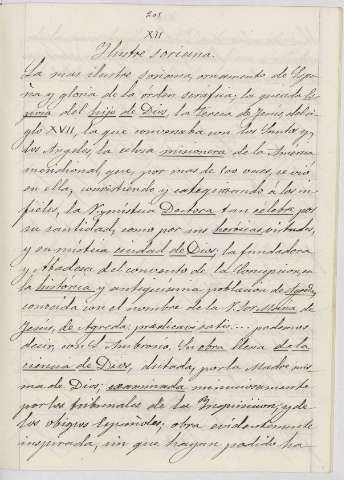 201
XII
Ilustre soriana.
La mas ilustre soriana, ornamento de Espa-
ña y gloria de la orden serafica; la querida Es-
posa del hijo de Dios, la Teresa de Jesus del si-
glo XVII, la que conversaba con los Santos y
los Angeles, la celosa misionera de la America
meridional, que, por mas de 500 veces, se vió
en ella, convirtiendo y catequizando a los in-
fieles, la V. mística Doctora tan celebre por
su santidad, como por sus heróicas virtudes,
y su mística ciudad de Dios, la fundadora
y Abadesa del convento de la Concepcion, en
la histórica y antiquisima poblacion de Agreda,
conocida con el nombre de la V. Sor Maria de
Jesus, de Agreda; predicari satis... podemos
decir, con S. Ambrosio. Su obra llena de la
ciencia de Dios, dictada, por la Madre mis-
ma de Dios; examinada minuciosamente
por los tribunales de la Inquisicion, y de
los obispos españoles; obra evidentemente
inspirada, sin que hayan podido ha-